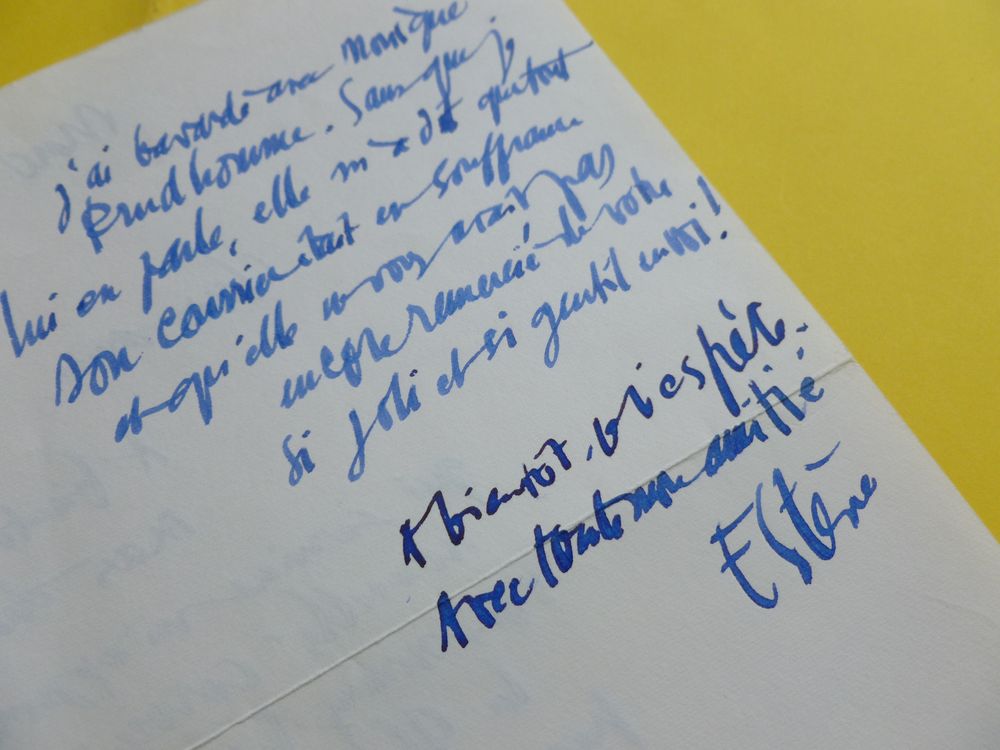 j'ai bavardé avec Monique
Prudhomme. Sans que j
lui en parle, elle m'a dit que tout
son courrier était en souffrance
et qu'elle ne vous avait pas
encore remercié de votre
si joli et si gentil envoi !
A bientôt, j'espère.
Avec toute mon amitié
Estène